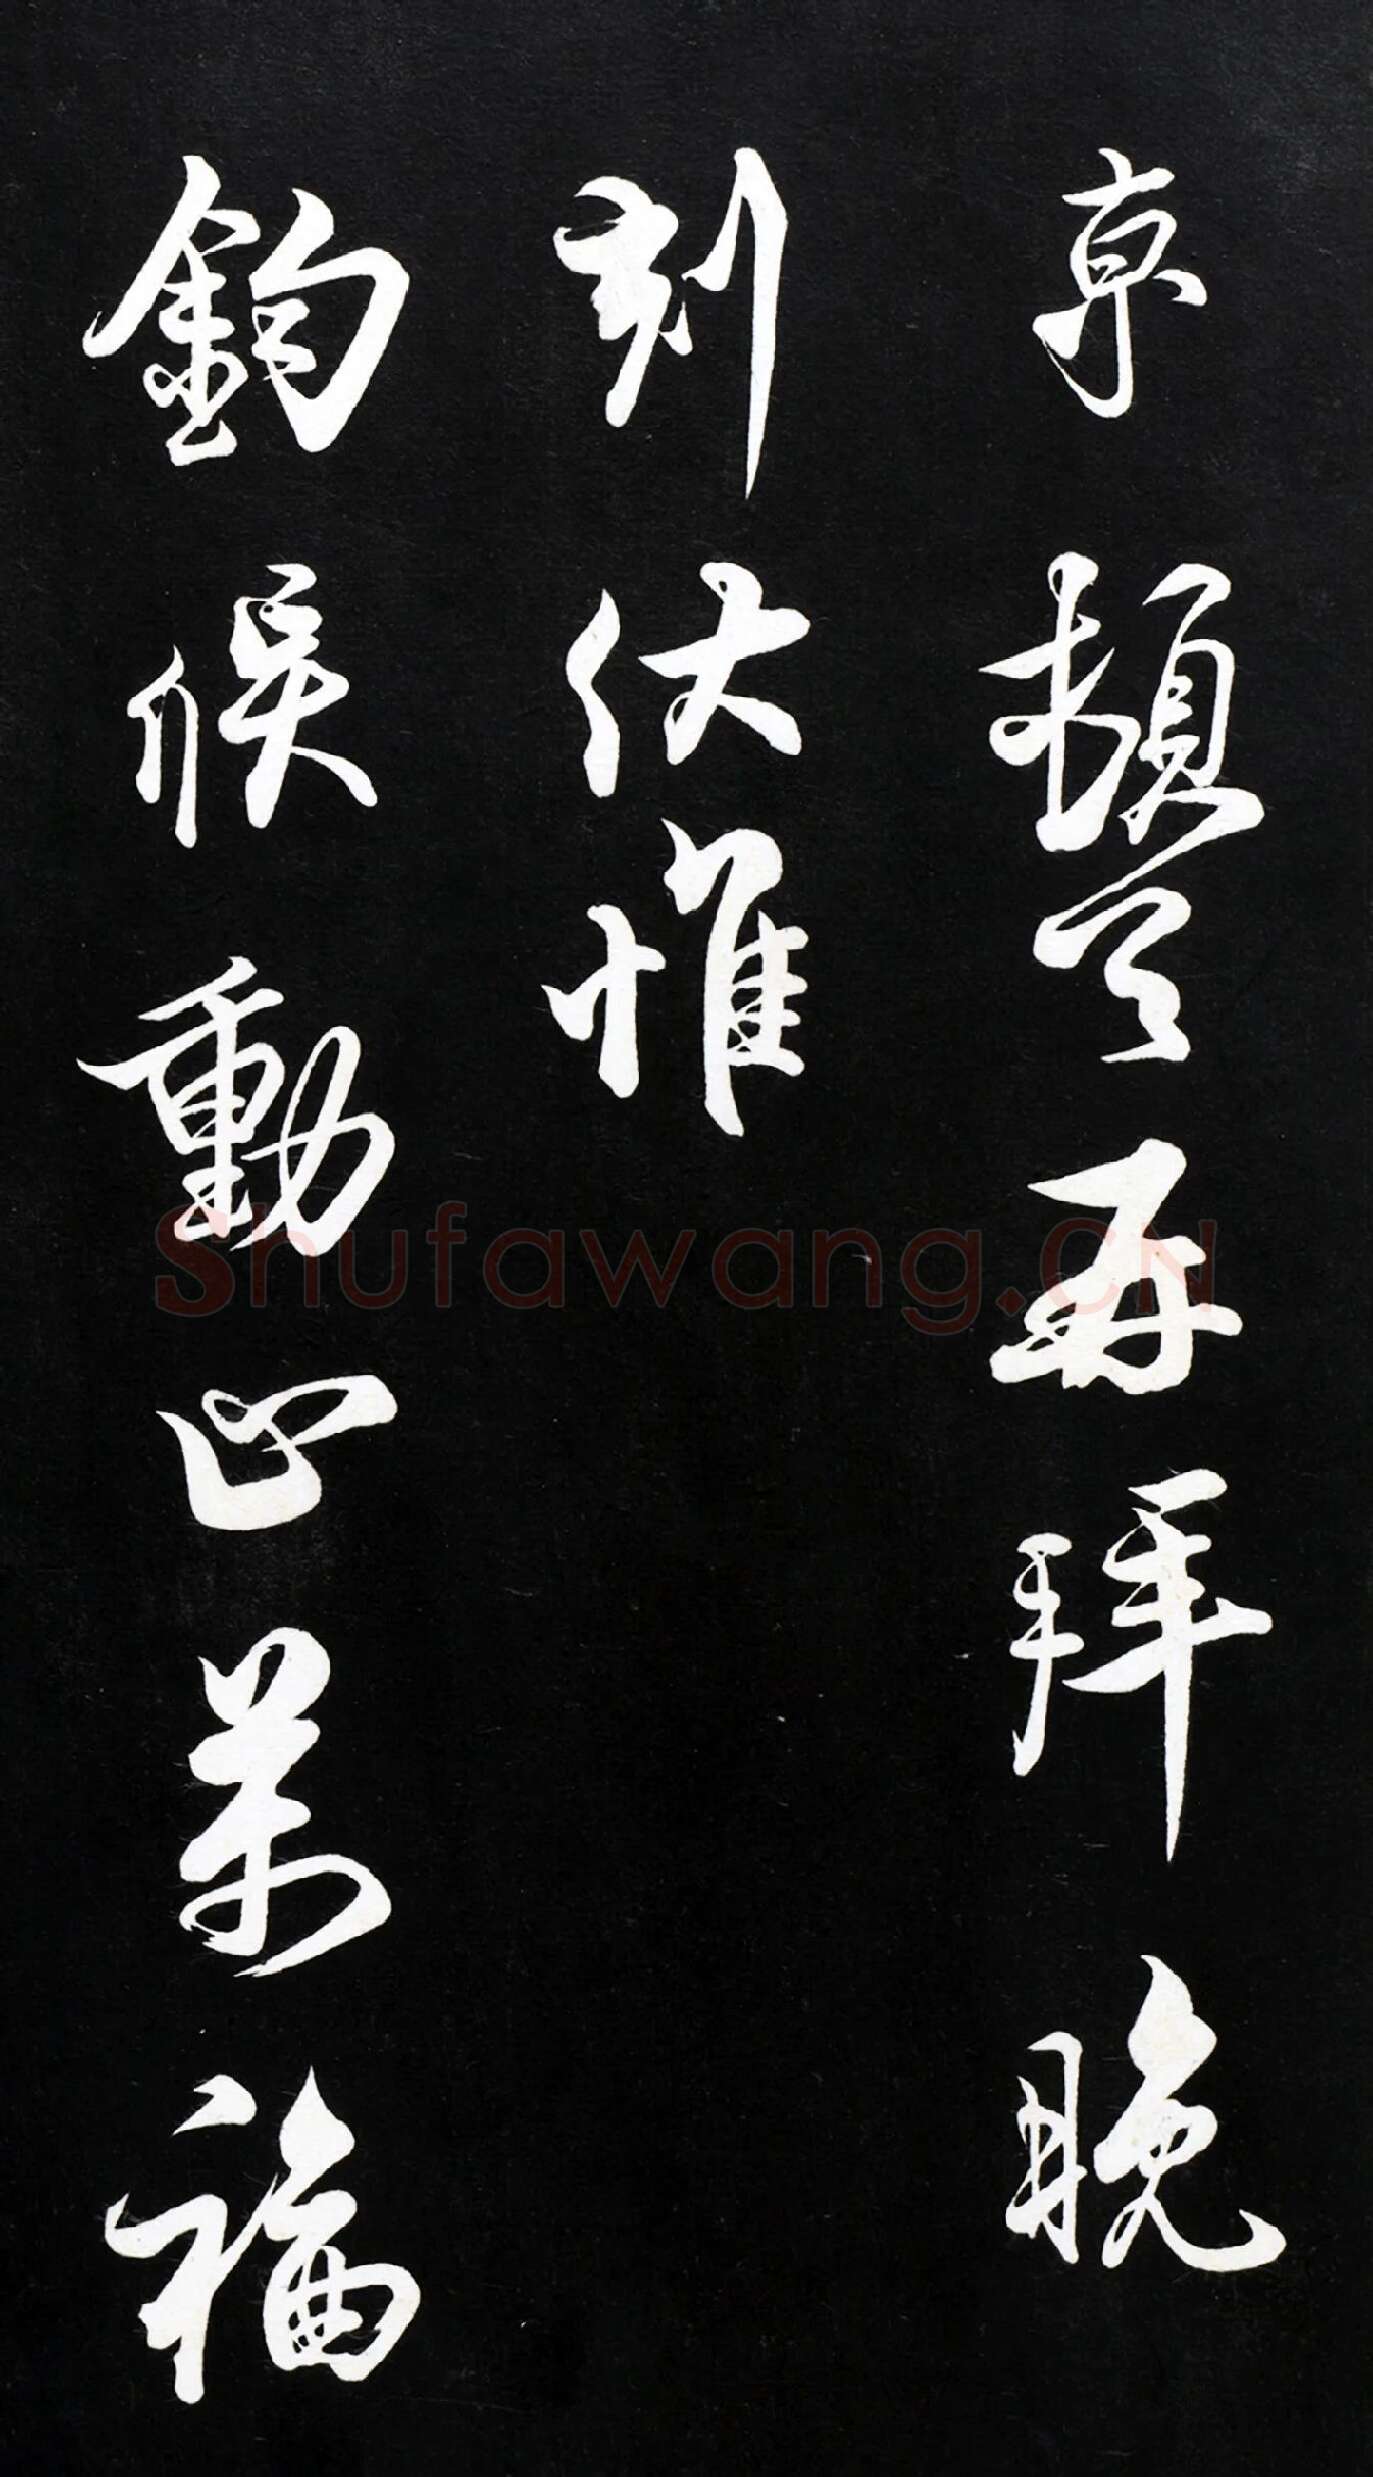 京頓首再拜晚
刻伏惟
鈞候動止萬福
Shufawang.CN